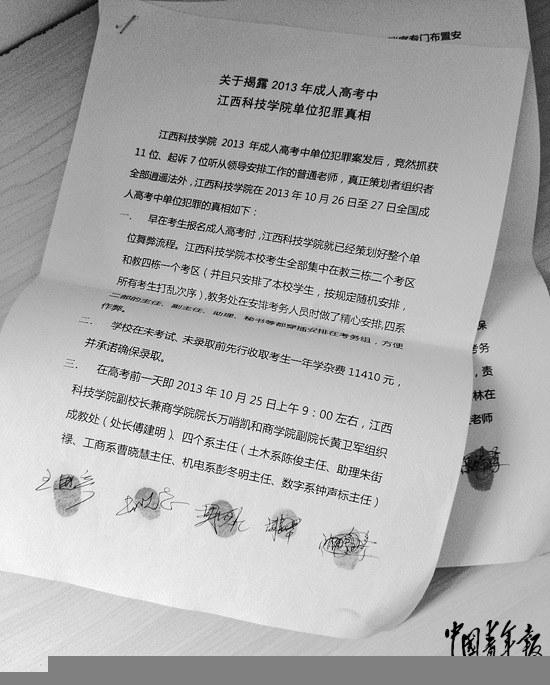 察专门布置安
关于揭露 2013 年成人高考中
江西科技学院单位犯罪真相
江西科技学院 2013 年成人高考中单位犯罪案发后，竟然抓获
11 位、起诉 7 位听从领导安排工作的普通老师，真正策划者组织者
全部逍遥法外，江西科技学院在 2013 年 10 月 26 日至 27 日全国成
人高考中单位犯罪的真相如下：
一、 早在考生报名成人高考时，江西科技学院就已经策划好整个单
位舞弊流程。江西科技学院本校考生全部集中在教三栋二个考区
和教四栋一个考区（并且只安排了本校学生，按规定随机安排，
所有考生打乱次序），教务处在安排考务人员时做了精心安排，四系
二部的主任、副主任、助理、秘书等都穿插安排在考务组，方便
作弊。
二、 学校在未考试、未录取前先行收取考生一年学杂费 11410 元，
并承诺确保录取。
三、 在高考前一天即 2013 年 10 月 25 日上午 9：00 左右，江西
科技学院副校长兼商学院院长万哨凯和商学院副院长黄卫军组织
成教处（处长傅建明）、四个系主任（土木系陈俊主任、助理朱街
禄、工商系曹晓慧主任、机电系彭冬明主任、数字系钟声标主任）
保
考务
，责
林在
老师
中国青年报